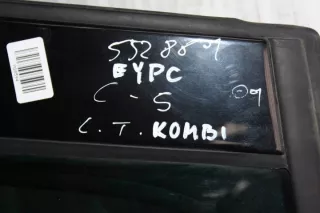 552 88 01
EYPC
C-5
L.T. KOMBI